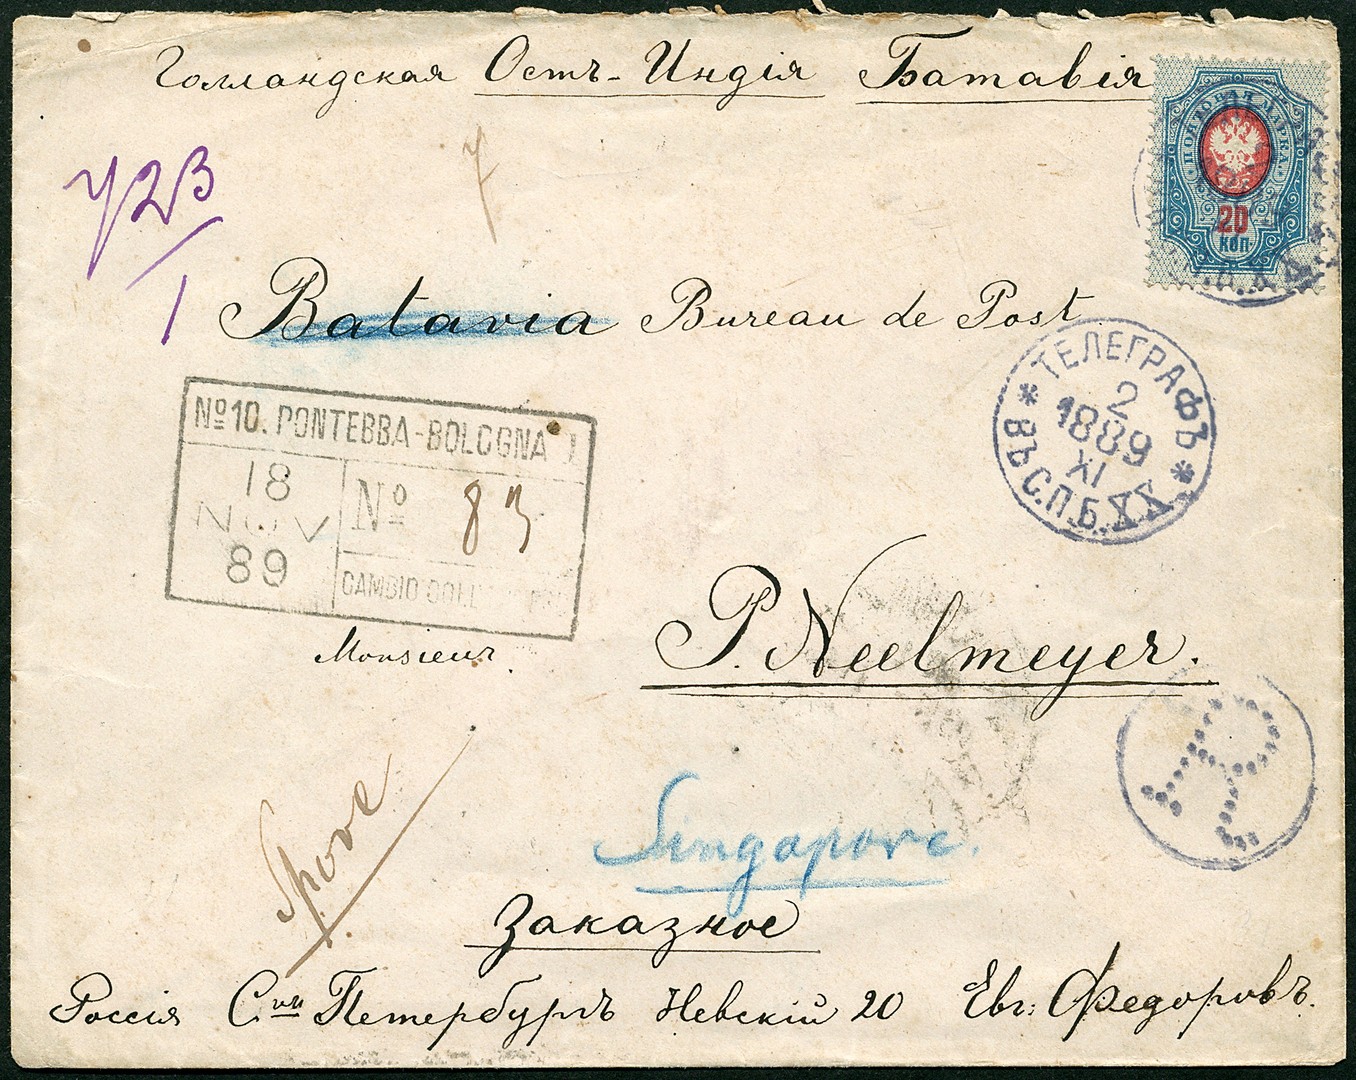 Голландская Остъ-Индія Батавія
ПОЧТОВАЯ МАРКА
20
КОП
723
1
7
Batavia Bureau de Post
ТЕЛЕГРАФЪ
2
1889
XI
ВЪ С.П.Б. XX
№10. PONTEBBA-BOLOGNA
18
NOV
89
№ 83
CAMBIO COLL
Monsieur
P. Neelmeyer.
R
Spore
Singapore.
Заказное
Россія С пии Петербургъ Невскій 20 Евг: Федоровъ.